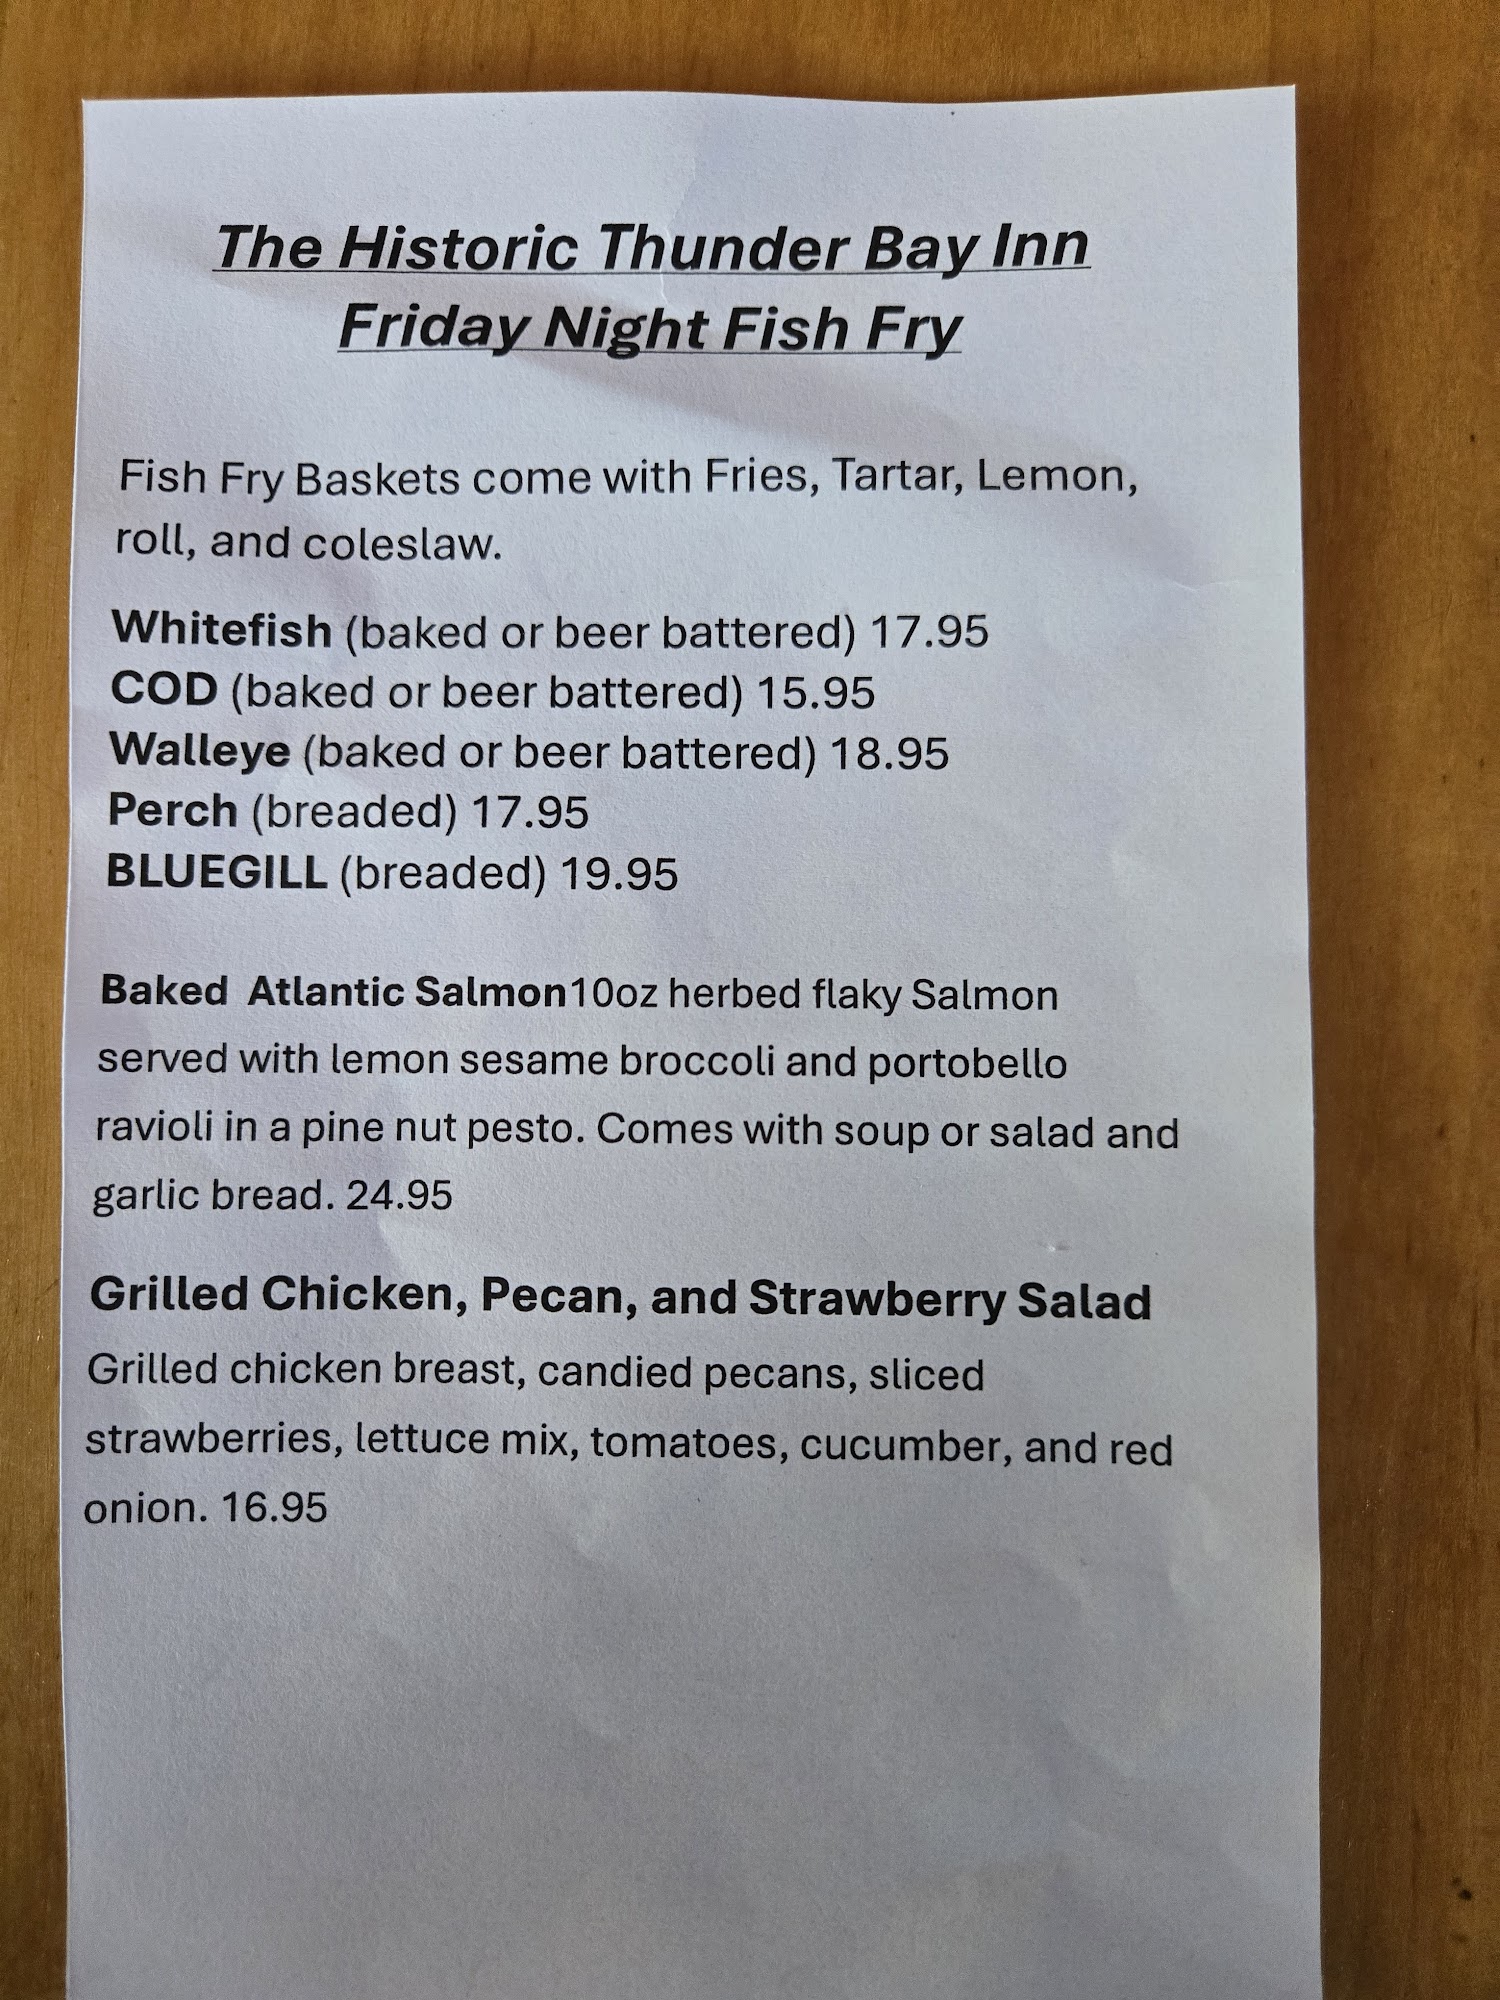 The Historic Thunder Bay Inn
Friday Night Fish Fry
Fish Fry Baskets come with Fries, Tartar, Lemon,
roll, and coleslaw.
Whitefish (baked or beer battered) 17.95
COD (baked or beer battered) 15.95
Walleye (baked or beer battered) 18.95
Perch (breaded) 17.95
BLUEGILL (breaded) 19.95
Baked  Atlantic Salmon10oz herbed flaky Salmon
served with lemon sesame broccoli and portobello
ravioli in a pine nut pesto. Comes with soup or salad and
garlic bread. 24.95
Grilled Chicken, Pecan, and Strawberry Salad
Grilled chicken breast, candied pecans, sliced
strawberries, lettuce mix, tomatoes, cucumber, and red
onion. 16.95